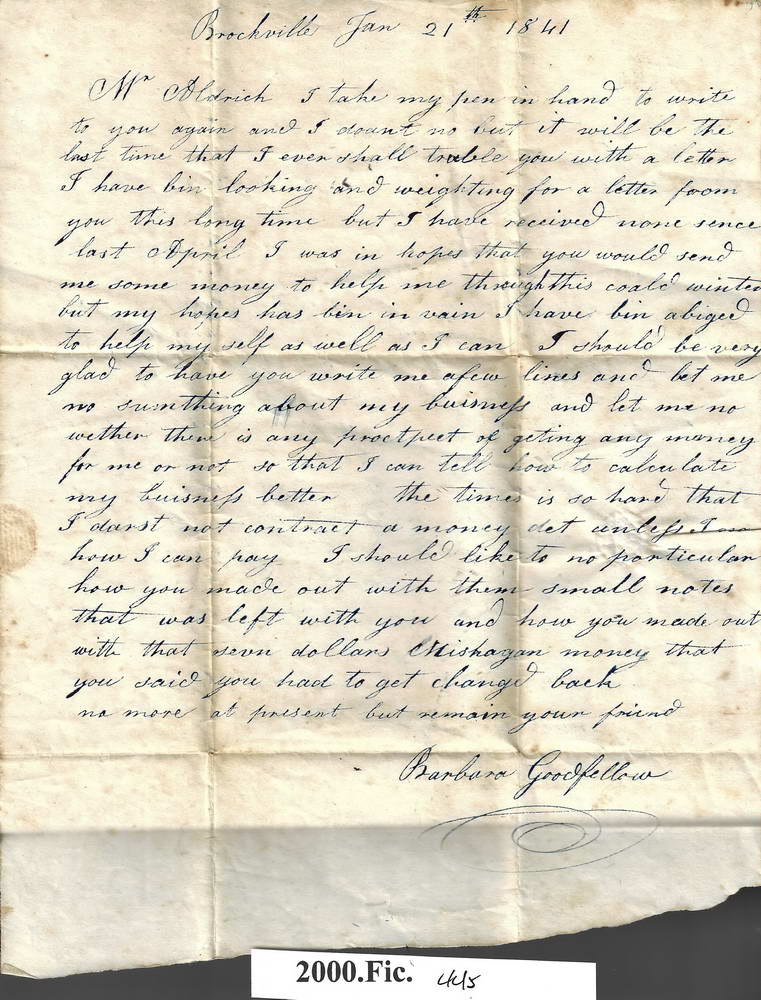 Brockville Jan 21th 1841
Mr Aldrich I take my pen in hand to write
to you again and I dount no but it will be the
last time that I ever shall truble you with a letter
I have bin looking and weighting for a letter from
you this long time but I have received none sence
last April I was in hopes that you would send
me some money to help me through this coald winter
but my hopes has bin in vain I have bin abiged
to help my self as well as I can I should be very
glad to have you write me a few lines and let me
no sumthing about my buisness and let me no
wether there is any proctpect of geting any money
for me or not so that I can tell how to calculate
my buisness better the times is so hard that
I darst not contract a money det unless I
how I can pay I should like to no particular
how you made out with them small notes
that was left with you and how you made out
with that sevn dollars Mishagan money that
you said you had to get changd back
no more at present but remain your friend
Barbara Goodfellow
2000.Fic. 445